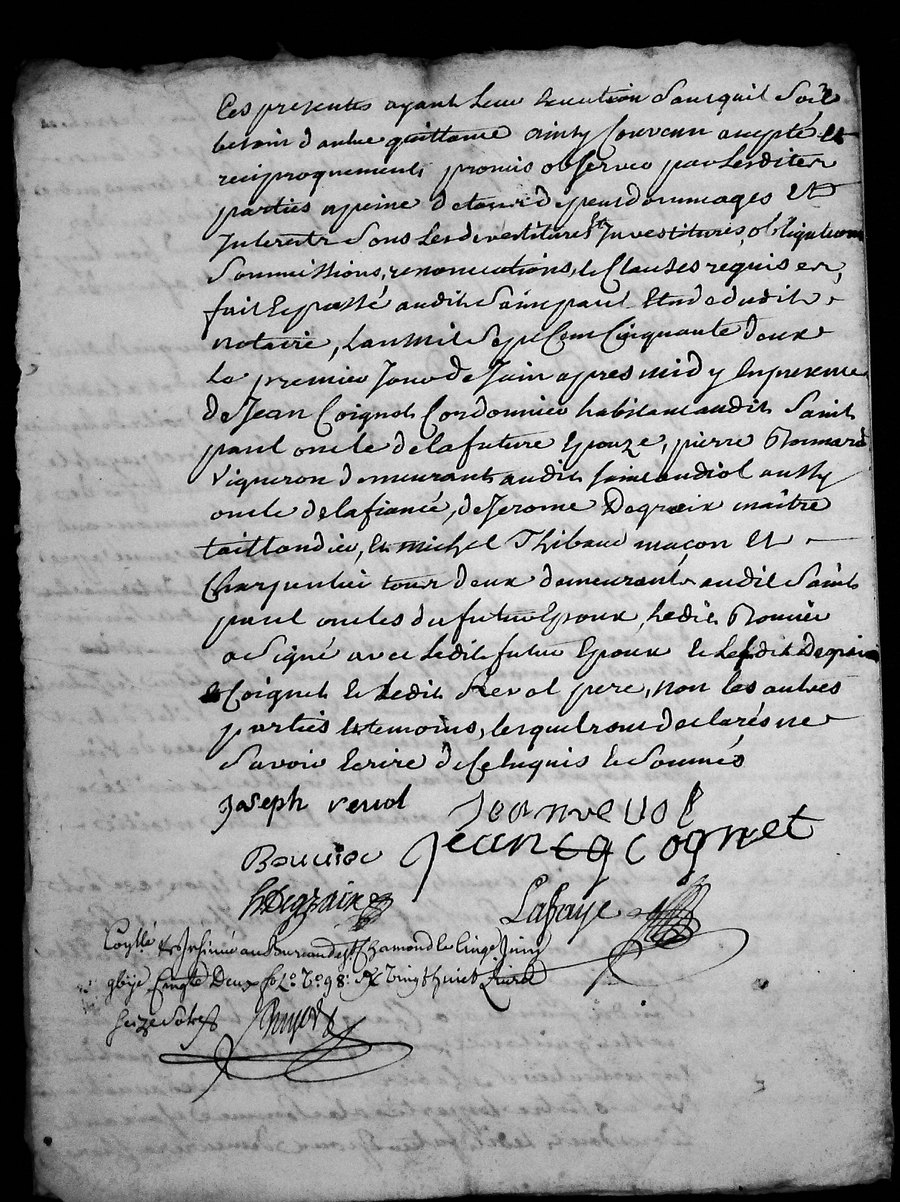 Ces presentes ayant leur execution sans quil soit
besoin dautre quittance ainsy convenu accepté et
reciproquement promis observer par lesdites
parties a peine de tous depens dommages et
Interests sous les devestitures Investitures, obligations
sommissions, renonciations, & clauses requises,
fait & passé audit Saint paul Etude dudit
notaire, Lan mil sept Cent Cinquante deux
Le premier Jour de Juin apres midy En presence
de Jean Coignet Cordonnier habitant audit Saint
paul oncle de la future Epouze, pierre
Vigneron demeurant audit Saint andiol aussy
oncle de la fiancée, de Jerome Degraix maître
taillandier, & michel Thibaud maçon et
Charpentier tous deux demeurants audit Saint
paul oncles du futur Epoux, Ledit
a signé avec ledit futur Epoux & ledit Degraix
& Coignet & Ledit Revol pere, non les autres
parties & temoins, lesquels ont declarés ne
savoir Ecrire de ce Enquis & sommés
Joseph revol Jean revol
Jean cognet
Degraix Lafaye
au Bureau de St Chamond le cinq Juin
Deux fo 98